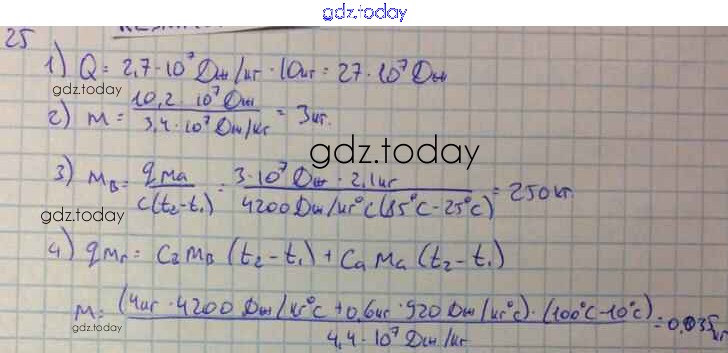 gdz.today
25
1) Q = 2,7 · 10⁷ Дж/кг · 10кг = 27 · 10⁷ Дж
gdz.today
2) m = 10,2 · 10⁷ Дж / 3,4 · 10⁷ Дж/кг = 3кг.
gdz.today
3) mв = qmд / c(t₂-t₁) = 3·10⁷ Дж · 2,1кг / 4200 Дж/кг°С (85°С-25°С) = 250кг.
gdz.today
4) qmг = C₂mв (t₂-t₁) + Cam a (t₂-t₁)
m = (4кг · 4200 Дж/кг°С + 0,6кг · 920 Дж/кг°С) · (100°С-10°С) / 4,4 · 10⁷ Дж/кг = 0,035кг
gdz.today